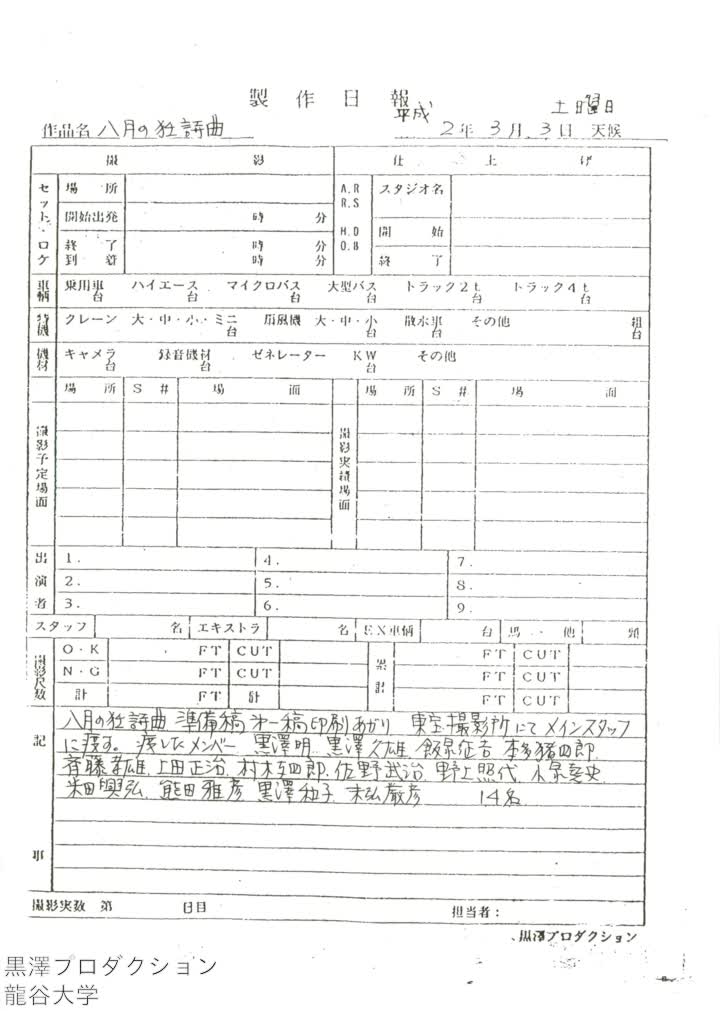 製作日報
平成 土曜日
作品名 八月の狂詩曲 2年 3月 3日 天候
撮影 仕上げ
セット・ロケ 場所 A.R R.S スタジオ名
開始出発 時 分 H.D O.B 開始
終了 時 分 終了
到着 時 分
車輌 乗用車 台 ハイエース 台 マイクロバス 台 大型バス 台 トラック2t 台 トラック4t 台
特機 クレーン 大・中・小・ミニ 台 扇風機 大・中・小 台 散水車 台 その他 組 台
機材 キャメラ 台 録音機材 台 ゼネレーター KW 台 その他
場所 S# 場面 場所 S# 場面
撮影予定場面 撮影実績場面
出演者 1. 4. 7.
2. 5. 8.
3. 6. 9.
スタッフ 名 エキストラ 名 EX車輌 台 馬・他 頭
撮影尺数 O・K FT CUT 累計 FT CUT
N・G FT CUT FT CUT
計 FT 計 FT CUT
記事
八月の狂詩曲 準備稿 第一稿印刷あがり 東宝撮影所にてメインスタッフ
に渡す。渡したメンバー 黒澤明、黒澤久雄、飯泉征吉、本多猪四郎、
斉藤孝雄、上田正治、村木与四郎、佐野武治、野上照代、小泉堯史、
米田興弘、熊田雅彦、黒澤和子、末弘厳彦 14名
撮影実数 第 日目 担当者:
黒澤プロダクション
黒澤プロダクション
龍谷大学